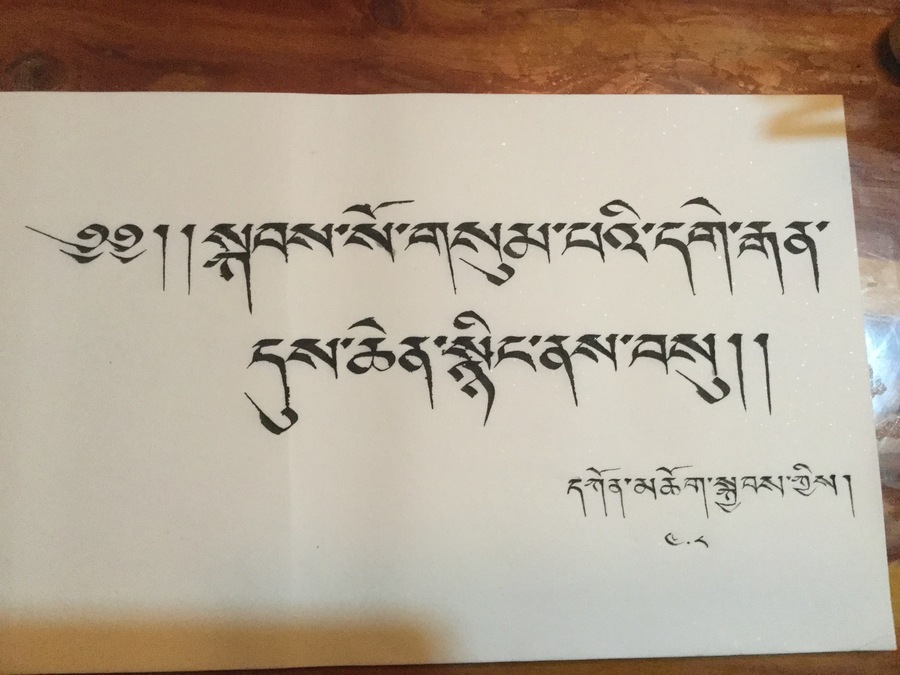 ༄༅།།སྐབས་སོ་གསུམ་པའི་དགེ་རྒན་
དུས་ཆེན་སྙིང་ནས་བསུ།།
དཀོན་མཆོག་སྐྱབས་ཀྱིས།
༩.༨